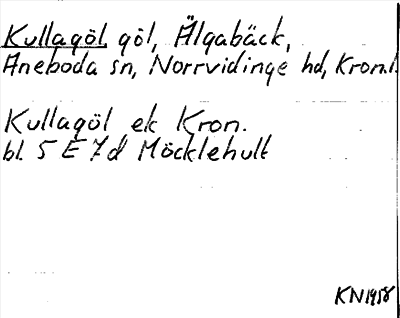 Kullagöl, göl, Älgabäck,
Aneboda sn, Norrvidinge hd, Kron.l.
Kullagöl ek Kron.
bl. 5 E 7d Möcklehult
KN 1958